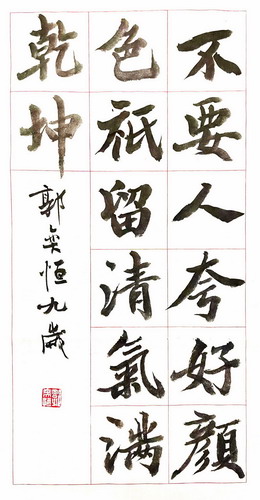 不要人夸好顔
色祇留清氣滿
乾坤
郭奕恒九歲